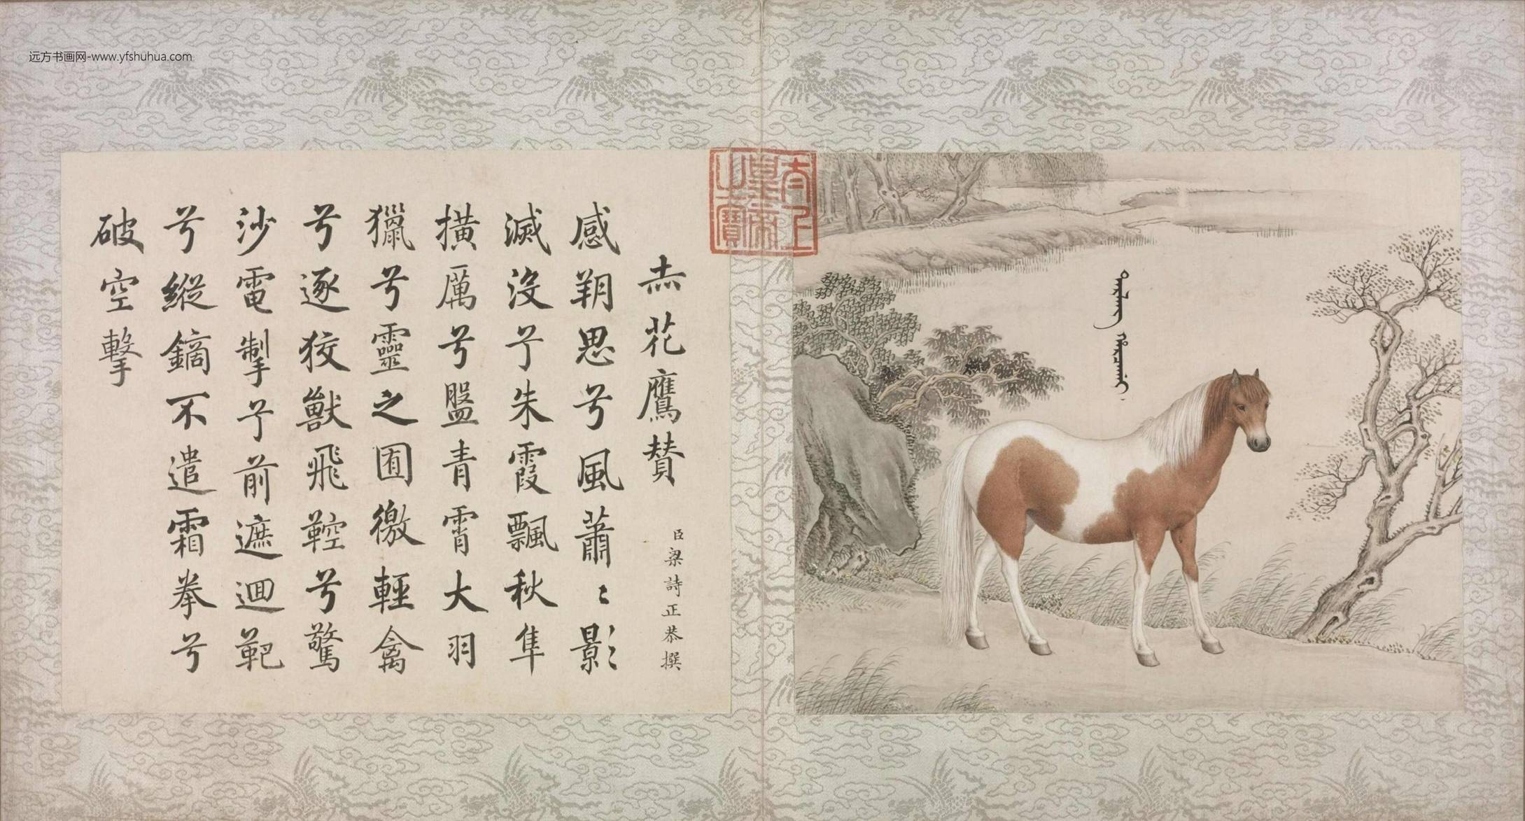 远方书画网-www.yfshuhua.com
太上
皇帝
之寶
赤花鷹賛
臣梁詩正恭撰
感朔思兮風蕭〻影
滅沒兮朱霞飄秋隼
摸厲兮盤青霄大羽
獵兮靈之囿徼輕禽
兮逐狡獸飛鞚兮驚
沙電掣兮前遮迴靶
兮縱鏑不遣霜拳兮
破空擊